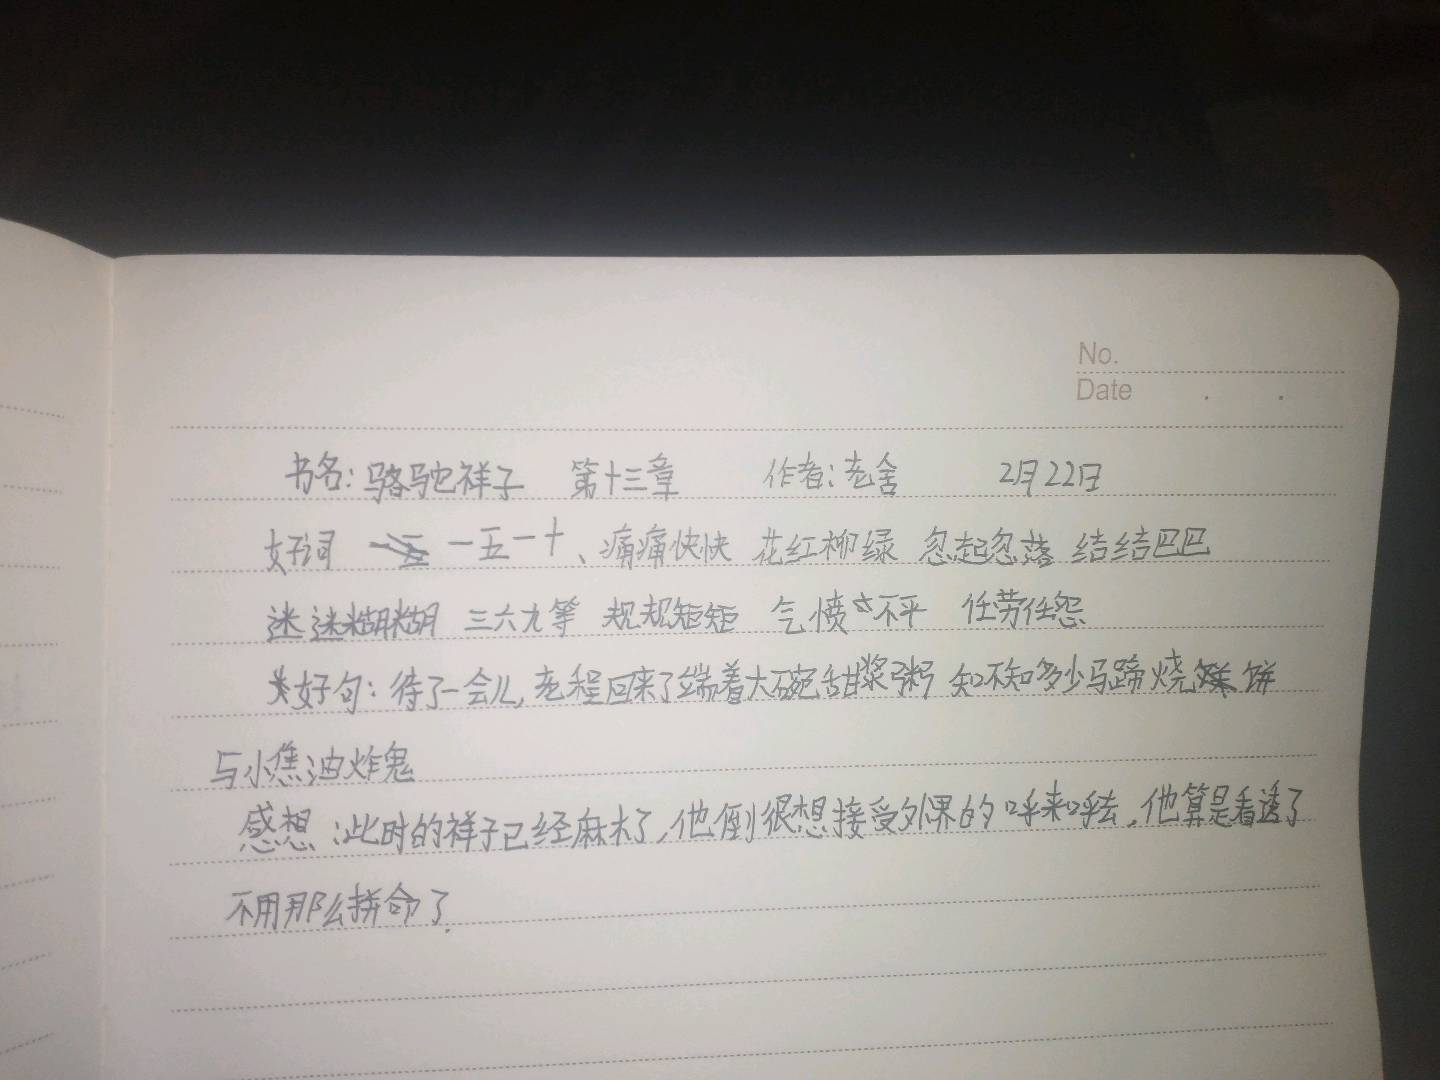 No.
Date . .
书名:骆驼祥子 第十三章 作者:老舍 2月22日
好词 一五一十、痛痛快快 花红柳绿 忽起忽落 结结巴巴
迷迷糊糊 三六九等 规规矩矩 气愤不平 任劳任怨
好句:待了一会儿,老程回来了端着大碗甜浆粥 知不知多少马蹄烧饼
与小焦油炸鬼
感想:此时的祥子已经麻木了,他倒很想接受外界的呼来呼去,他算是看透了
不用那么拼命了.